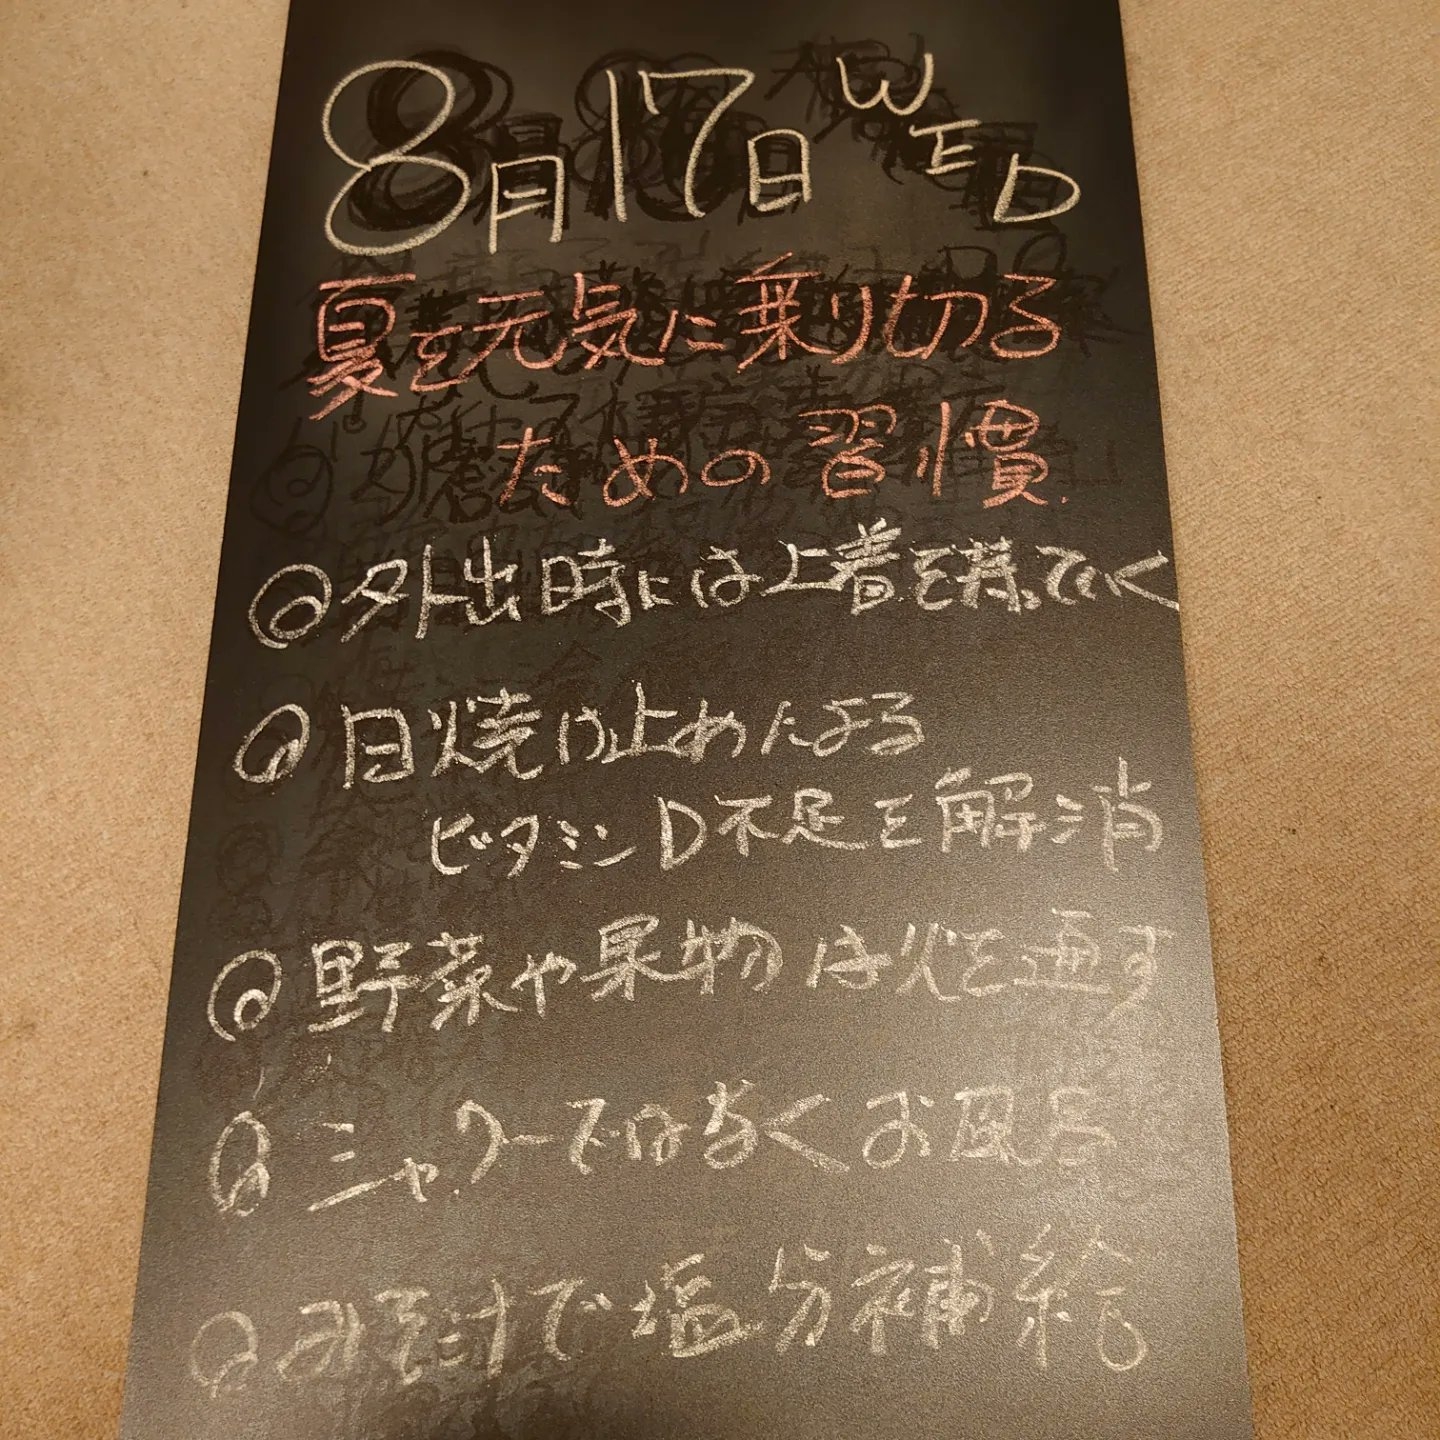 8月17日 WED
夏を元気に乗り切る
ための習慣
外出時には上着を持っていく
日焼け止めによる
ビタミンD不足を解消
野菜や果物は火を通す
シャワーではなくお風呂
みそ汁で塩分補給